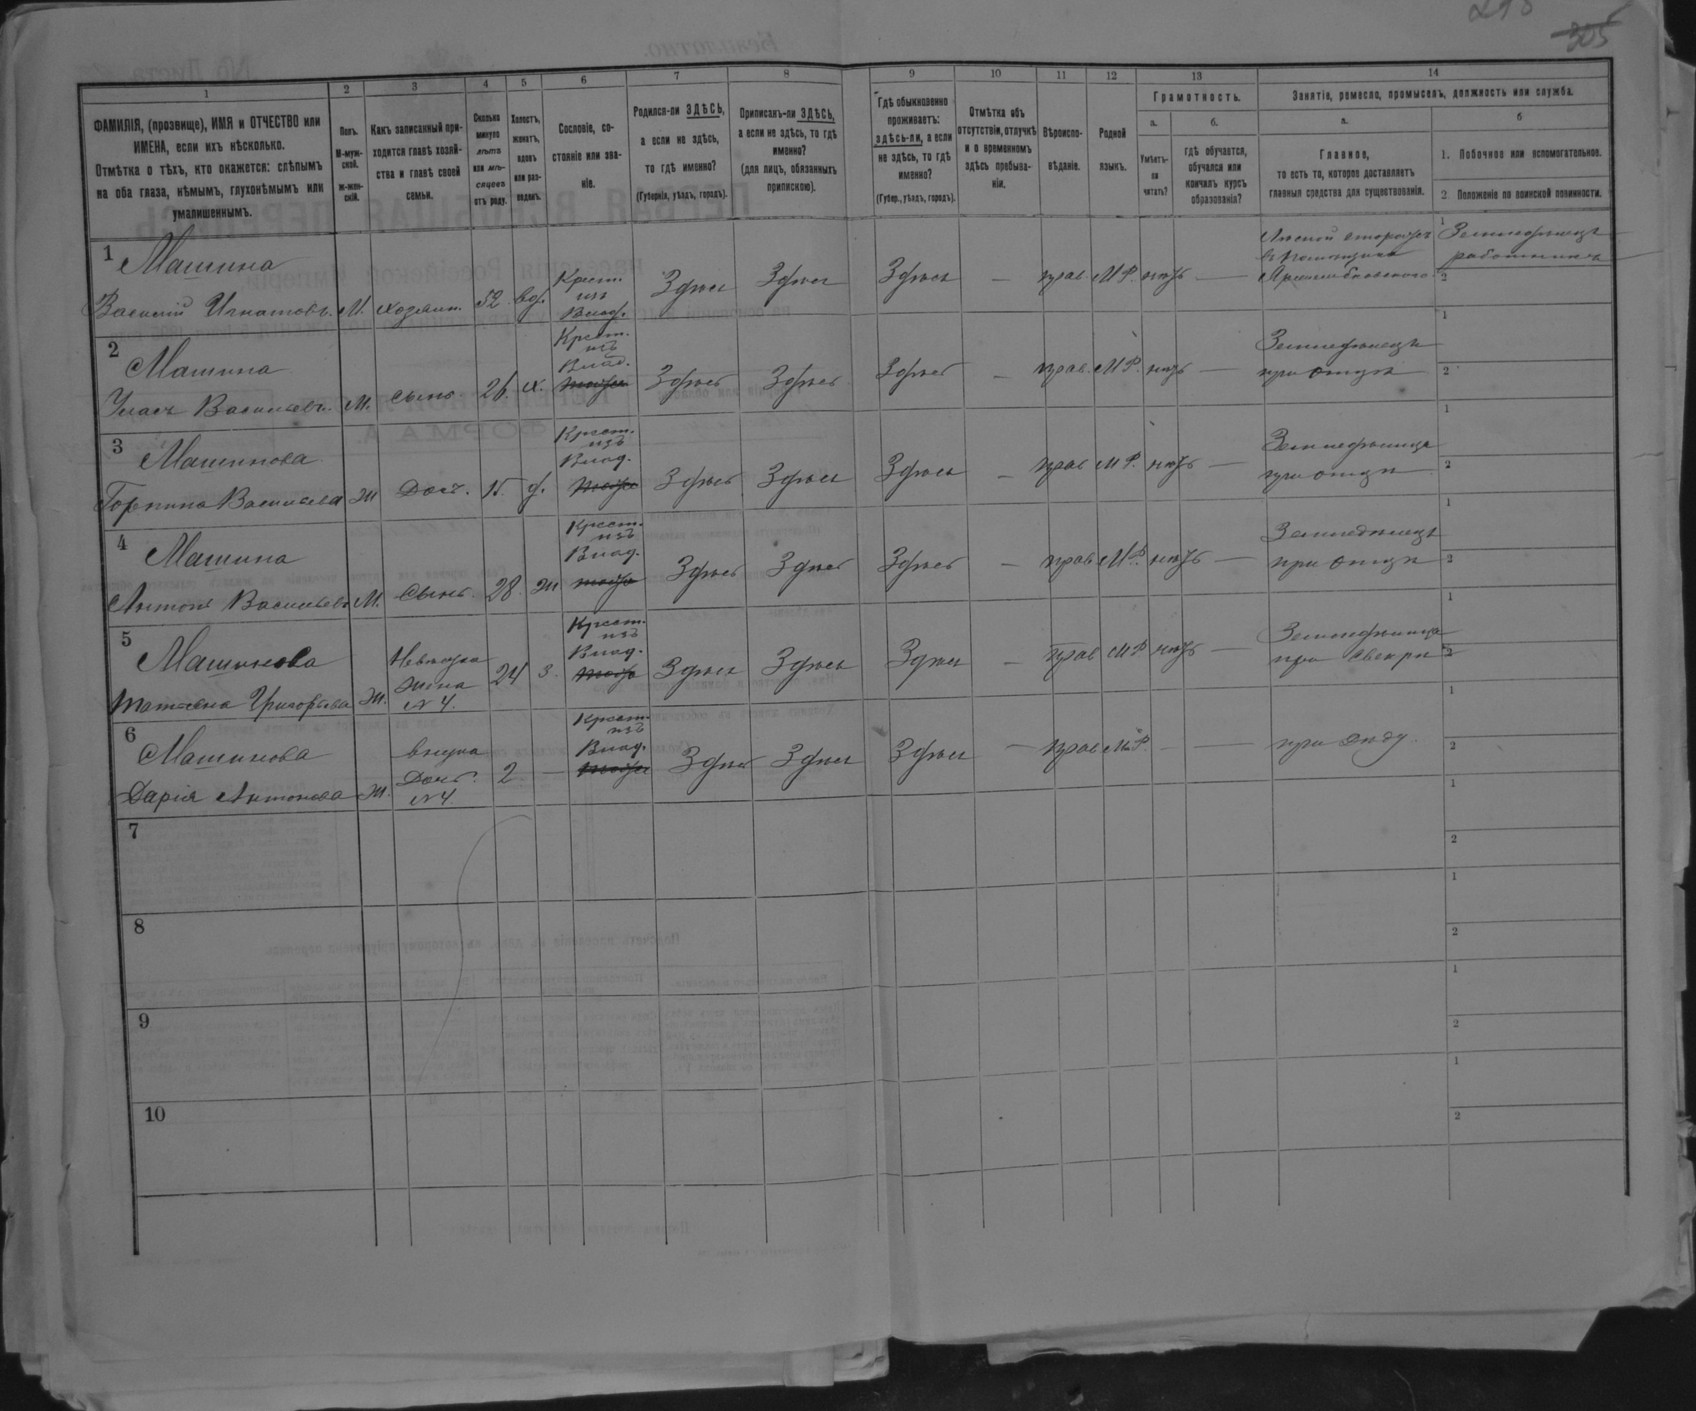 305
1 2 3 4 5 6 7 8 9 10 11 12 13 14
ФАМИЛІЯ, (прозвище), ИМЯ и ОТЧЕСТВО или
ИМЕНА, если ихъ нѣсколько.
Отмѣтка о тѣхъ, кто окажется: слѣпымъ
на оба глаза, нѣмымъ, глухонѣмымъ или
умалишеннымъ.
Полъ.
М-муж-
ской.
ж-жен-
скій.
Какъ записанный при-
ходится главѣ хозяй-
ства и главѣ своей
семьи.
Сколько
минуло
лѣтъ
или мѣ-
сяцевъ
отъ роду.
Холостъ,
женатъ,
вдовъ
или раз-
веденъ.
Сословіе, со-
стояніе или зва-
ніе.
Родился-ли ЗДѢСЬ,
а если не здѣсь,
то гдѣ именно?
(Губернія, уѣздъ, городъ).
Приписанъ-ли ЗДѢСЬ,
а если не здѣсь, то гдѣ
именно?
(для лицъ, обязанныхъ
припискою).
Гдѣ обыкновенно
проживаетъ:
здѣсь-ли, а если
не здѣсь, то гдѣ
именно?
(Губер., уѣздъ, городъ).
Отмѣтка объ
отсутствіи, отлучкѣ
и о временномъ
здѣсь пребыва-
ніи.
Вѣроиспо-
вѣданіе.
Родной
языкъ.
Грамотность.
а.
Умѣетъ-
ли
читать?
б.
гдѣ обучается,
обучался или
кончилъ курсъ
образованія?
Занятіе, ремесло, промыселъ, должность или служба.
а.
Главное,
то есть то, которое доставляетъ
главныя средства для существованія.
б
1. Побочное или вспомогательное.
2. Положеніе по воинской повинности.
1 Машина
Василій Игнатовъ. М. хозяин. 52 вд. Крест. изъ Влад. Здѣсь Здѣсь Здѣсь — прав. М.Р. нѣтъ — Лѣсной сторожъ 1 Земледѣлецъ
работникъ
2
2 Машина
Власъ Васильевъ. М. сынъ. 26 х. Крест. изъ Влад. Здѣсь Здѣсь Здѣсь — прав. М.Р. нѣтъ — Земледѣлецъ
при отцѣ
1
2
3 Машинова
Горпина Васильева ж Доч. 15. д. Крест. изъ Влад. Здѣсь Здѣсь Здѣсь — прав М.Р. нѣтъ — Земледѣлица
при отцѣ
1
2
4 Машина
Антонъ Васильевъ М. Сынъ. 28. ж Крест. изъ Влад. Здѣсь Здѣсь Здѣсь — прав М.Р. нѣтъ — Земледѣлецъ
при отцѣ
1
2
5 Машинова
Татьяна Григорьева ж. Невѣстка
жена
№ 4. 24 з. Крест. изъ Влад. Здѣсь Здѣсь Здѣсь — прав М.Р нѣтъ — Земледѣлица
при свекрѣ
1
2
6 Машинова
Дарія Антонова ж. внучка
Дочь.
№ 4 2 — Крест. изъ Влад. Здѣсь Здѣсь Здѣсь — прав М.Р. — — при дѣду
1
2
7
1
2
8
1
2
9
1
2
10
1
2